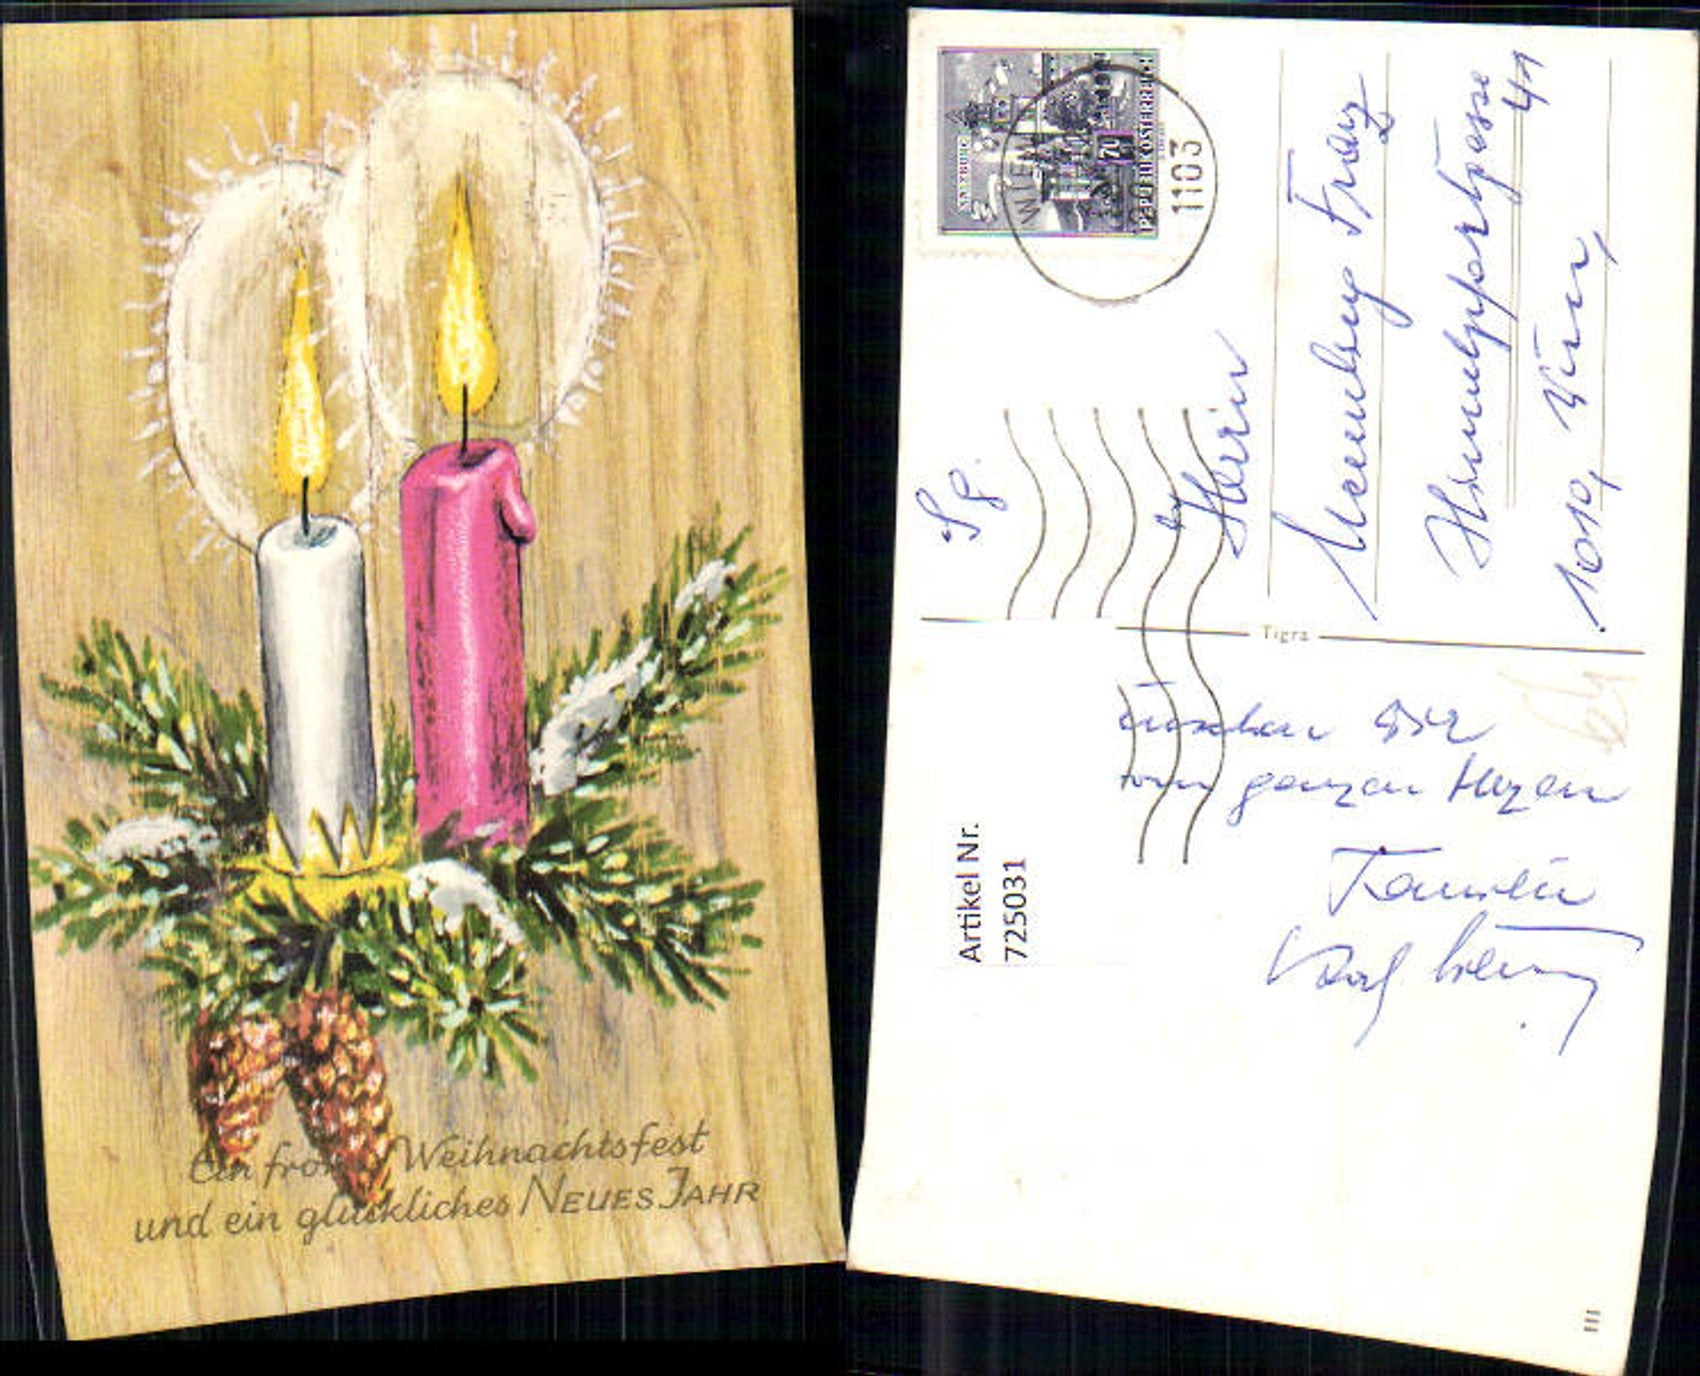 Ein frohes Weihnachtsfest
und ein glückliches NEUES JAHR
SALZBURG
70
REPUBLIK ÖSTERREICH
WIEN
1103
Sg.
Herrn
Franz
Himmelpfortgasse
41
1010, Wien,
Tigra
wünschen
vom ganzen Herzen
Familie
Artikel Nr.
7225031
III